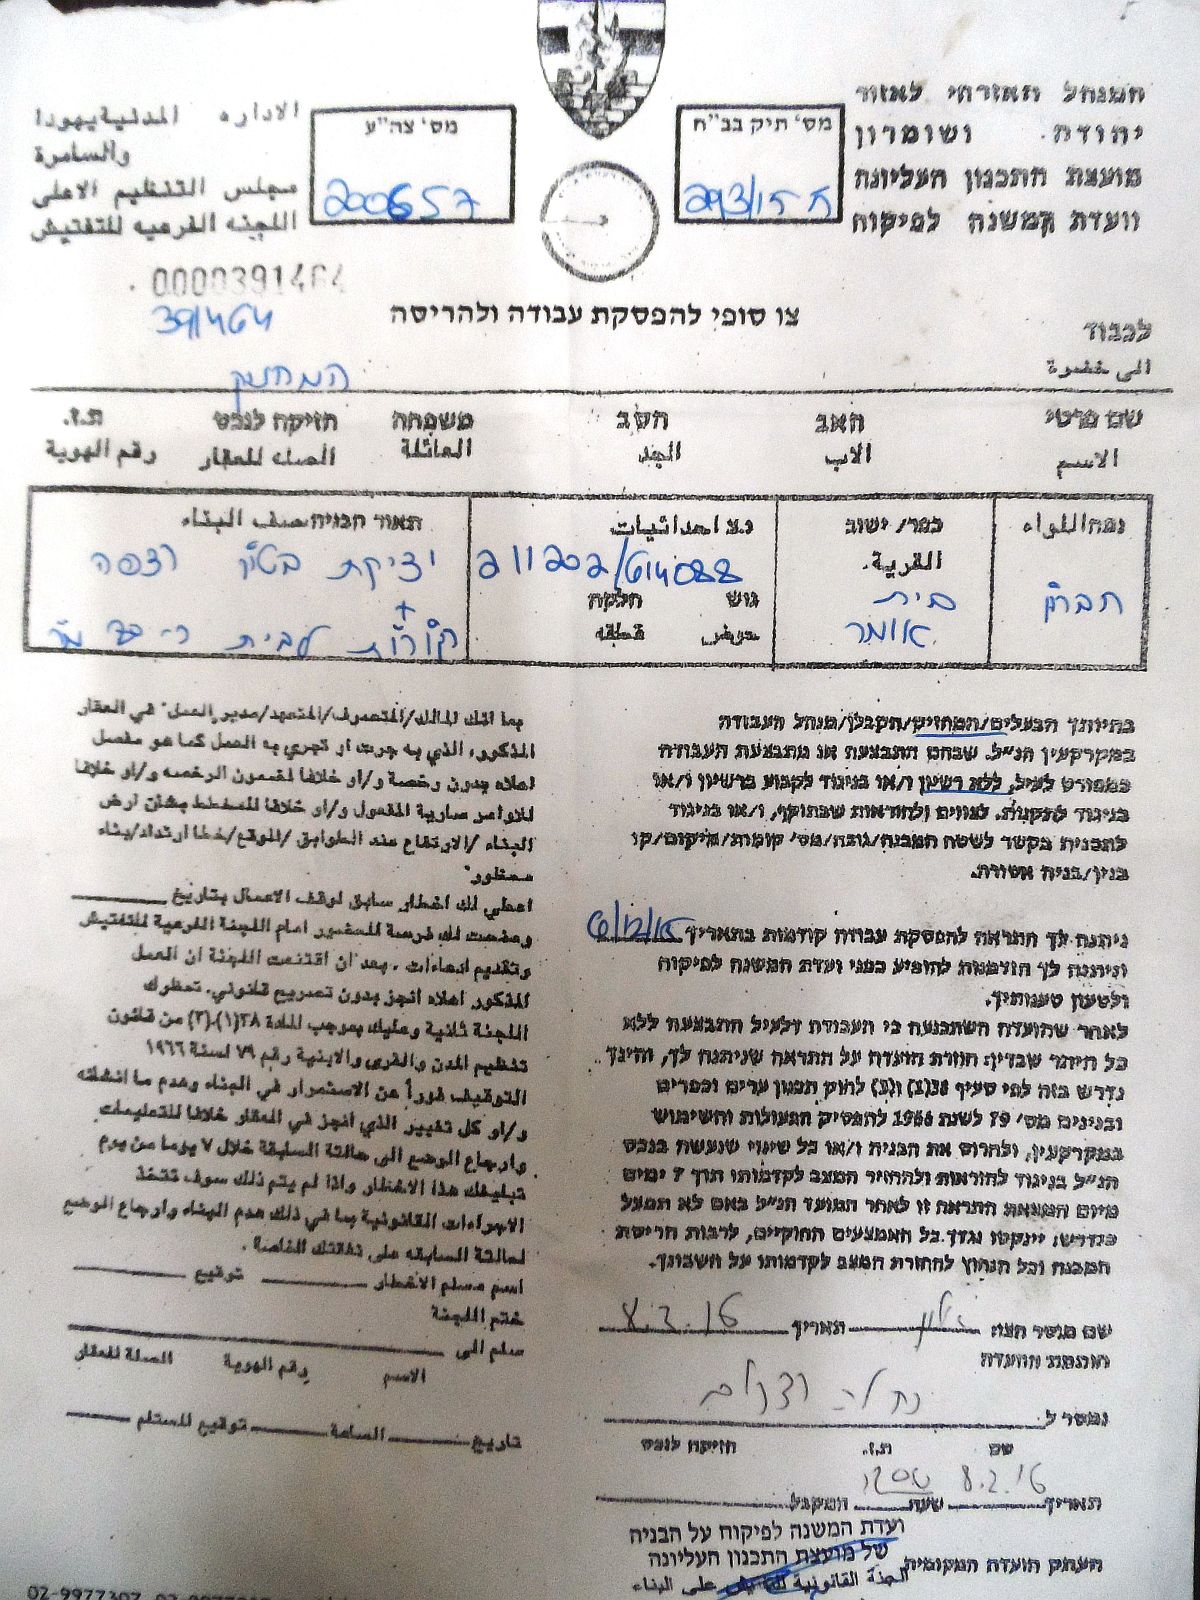 המנהל האזרחי לאזור
יהודה ושומרון
מועצת התכנון העליונה
וועדת המשנה לפיקוח
מס' תיק בב"ח
293/15 ח
מס' צה"ע
200657
الاداره المدنية يهودا
والسامرة
مجلس التنظيم الاعلى
اللجنه الفرعيه للتفتيش
0000391464
391464
צו סופי להפסקת עבודה ולהריסה
לכבוד
الى حضرة
המחזיק
שם פרטי האב הסב משפחה חזיקה לנכס ת.ז.
الاسم الاب الجد العائلة الصله للعقار رقم الهوية
נפה اللواء
חברון
כפר/ ישוב
القرية.
בית
אומר
נ.צ احداثيات
211202/614088
גוש חלקה
حوض قطعه
תאור הבניה صنف البناء
יציקת בטון רצפה
+
קורות לבית
בהיותך הבעלים/המחזיק/הקבלן/מנהל העבודה
במקרקעין הנ"ל. שבהם התבצעה או מתבצעת העבודה
כמפורט לעיל, ללא רשיון ו/או בניגוד לקבוע ברשיון ו/או
בניגוד לתקנות. לצווים ולהוראות שבתוקף, ו/או בניגוד
לתכנית בקשר לשטח המבנה/גובה/מס' קומות/מיקום/קו
בנין/בניה אסורה.
ניתנה לך התראה להפסקת עבודה קודמות בתאריך 6/12/15
וניתנה לך הזדמנות להופיע בפני ועדת המשנה לפיקוח
ולטעון טענותיך.
לאחר שהועדה השתכנעה כי העבודה דלעיל התבצעה ללא
כל היתר שבדין: חוזרת הועדה על התראה שניתנה לך, והינך
נדרש בזה לפי סעיף 38(1) ו(3) לחוק תכנון ערים וכפרים
ובנינים מס' 79 לשנת 1966 להפסיק הפעולות והשימוש
במקרקעין, ולהרוס את הבניה ו/או כל שינוי שנעשה בנכס
הנ"ל בניגוד להוראות ולהחזיר המצב לקדמותו תוך 7 ימים
מיום המצאת התראה זו לאחר המועד הנ"ל באם לא תפעל
כנדרש: יינקטו נגדך כל האמצעים החוקיים, לרבות הריסת
המבנה וכל הנחוץ להחזרת המצב לקדמותו על חשבונך.
שם מוסר הצו תאריך 8.2.16
חותמת הוועדה
נמסר ל
שם ת.ז. חזיקה לנכס
תאריך 8.2.16 שעה המקבל
העתק הועדה המקומית
ועדת המשנה לפיקוח על הבניה
של מועצת התכנון העליונה
على البناء
بما انك المالك/المتصرف/المتعهد/مدير العمل" في العقار
المذكور، الذي به جرت او تجري به العمل كما هو مفصل
اعلاه بدون رخصة و/او خلافا لمضمون الرخصه و/او خلافا
للاوامر سارية المفعول و/او خلافا للمخطط بشان ارض
البناء /الارتفاع عدد الطوابق /الموقع/خط ارتداد/بناء
محظور"
اعطي لك اخطار سابق لوقف الاعمال بتاريخ
ومنحت لك فرصة للحضور امام اللجنة الفرعية للتفتيش
وتقديم ادعاءات . بعد ان اقتنعت اللجنة ان العمل
المذكور اعلاه انجز بدون تصريح قانوني. تخطرك
اللجنة ثانية وعليك بموجب للمادة ٣٨(١).(٣) من قانون
تنظيم المدن والقرى والابنية رقم ٧٩ لسنة ١٩٦٦
التوقيف فورا عن الاستمرار في البناء وهدم ما انشاته
و/او كل تغيير الذي انجز في العقار خلافا للتعليمات
وارجاع الوضع الى حالتة السابقة خلال ٧ يوما من يوم
تبليغك هذا الاخطار واذا لم يتم ذلك سوف تتخذ
الاجراءات القانونية بما في ذلك هدم البناء وارجاع الوضع
لحالتة السابقه على نفقتك الخاصة .
اسم مسلم الاخطار توقيع
ختم اللجنة
سلم الى
الاسم رقم الهوية الصلة للعقار
تاريخ الساعة توقيع المستلم
02-9977307